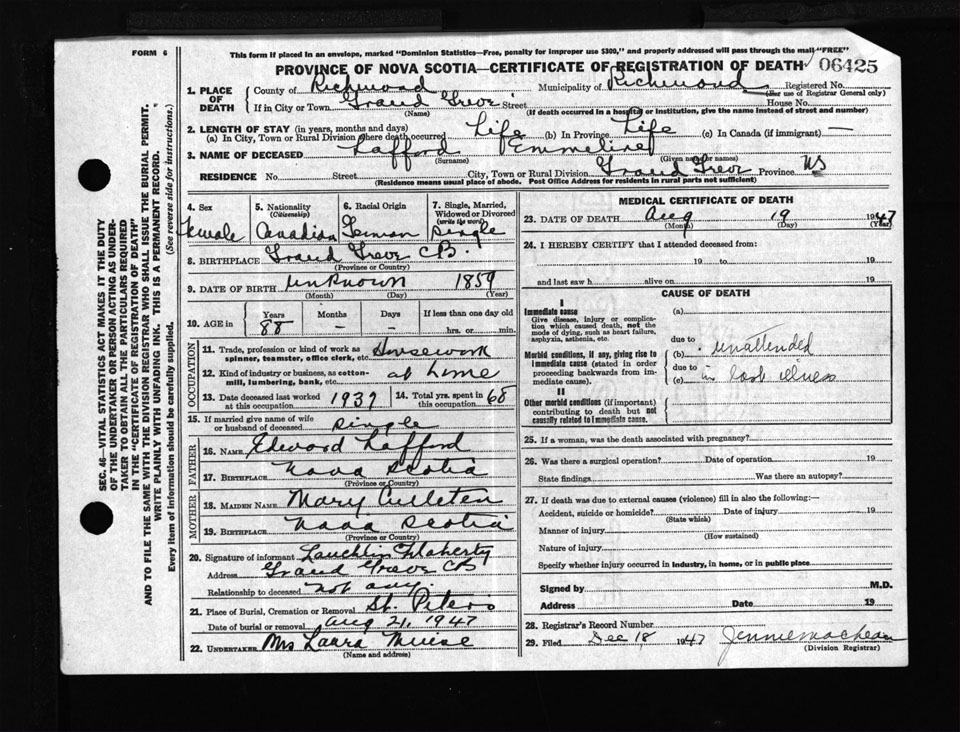 FORM 6
This form if placed in an envelope, marked "Dominion Statistics—Free, penalty for improper use $300," and properly addressed will pass through the mail "FREE"
PROVINCE OF NOVA SCOTIA—CERTIFICATE OF REGISTRATION OF DEATH 06425
1. PLACE OF DEATH County of Richmond Municipality of Richmond Registered No.
(For use of Registrar General only)
If in City or Town Grand Greve Street House No.
(Name) (If death occurred in a hospital or institution, give the name instead of street and number)
2. LENGTH OF STAY (in years, months and days)
(a) In City, Town or Rural Division where death occurred Life (b) In Province Life (c) In Canada (if immigrant) —
3. NAME OF DECEASED Lafford Emmeline
(Surname) (Given name or names)
RESIDENCE No. Street City, Town or Rural Division Grand Greve Province NS
(Residence means usual place of abode. Post Office Address for residents in rural parts not sufficient)
4. Sex Female
5. Nationality (Citizenship) Canadian
6. Racial Origin German
7. Single, Married, Widowed or Divorced (write the word) Single
8. BIRTHPLACE Grand Greve CB.
(Province or Country)
9. DATE OF BIRTH unknown 1859
(Month) (Day) (Year)
10. AGE in Years 88 Months – Days – If less than one day old hrs. or min.
OCCUPATION
11. Trade, profession or kind of work as spinner, teamster, office clerk, etc. Housework
12. Kind of industry or business, as cotton-mill, lumbering, bank, etc. at home
13. Date deceased last worked at this occupation 1937 14. Total yrs. spent in this occupation 68
15. If married give name of wife or husband of deceased single
FATHER
16. NAME Edward Lafford
17. BIRTHPLACE Nova Scotia
(Province or Country)
MOTHER
18. MAIDEN NAME Mary Culleten
19. BIRTHPLACE Nova Scotia
(Province or Country)
20. Signature of informant Lauchlin Flaherty
Address Grand Greve CB
Relationship to deceased not any.
21. Place of Burial, Cremation or Removal St. Peters
Date of burial or removal Aug 21, 1947
22. UNDERTAKER Mrs Laura Muise
(Name and address)
MEDICAL CERTIFICATE OF DEATH
23. DATE OF DEATH Aug 19 1947
(Month) (Day) (Year)
24. I HEREBY CERTIFY that I attended deceased from:
19 to 19
and last saw h alive on 19
CAUSE OF DEATH
I
Immediate cause
Give disease, injury or complication which caused death, not the mode of dying, such as heart failure, asphyxia, asthenia, etc.
(a)
due to
Morbid conditions, if any, giving rise to immediate cause (stated in order proceeding backwards from immediate cause).
(b) unattended
due to
(c) in last illness
II
Other morbid conditions (if important) contributing to death but not causally related to immediate cause.
25. If a woman, was the death associated with pregnancy?
26. Was there a surgical operation? Date of operation 19
State findings Was there an autopsy?
27. If death was due to external causes (violence) fill in also the following:—
Accident, suicide or homicide? Date of injury 19
(State which)
Manner of injury
(How sustained)
Nature of injury
Specify whether injury occurred in industry, in home, or in public place
Signed by M.D.
Address Date 19
28. Registrar's Record Number
29. Filed Dec 18 1947 Jennie MacLean
(Division Registrar)
SEC. 46—VITAL STATISTICS ACT MAKES IT THE DUTY
OF THE UNDERTAKER OR PERSON ACTING AS UNDER-
TAKER TO OBTAIN ALL THE PARTICULARS REQUIRED
IN THE "CERTIFICATE OF REGISTRATION OF DEATH"
AND TO FILE THE SAME WITH THE DIVISION REGISTRAR WHO SHALL ISSUE THE BURIAL PERMIT.
WRITE PLAINLY WITH UNFADING INK. THIS IS A PERMANENT RECORD.
Every item of information should be carefully supplied. (See reverse side for instructions.)